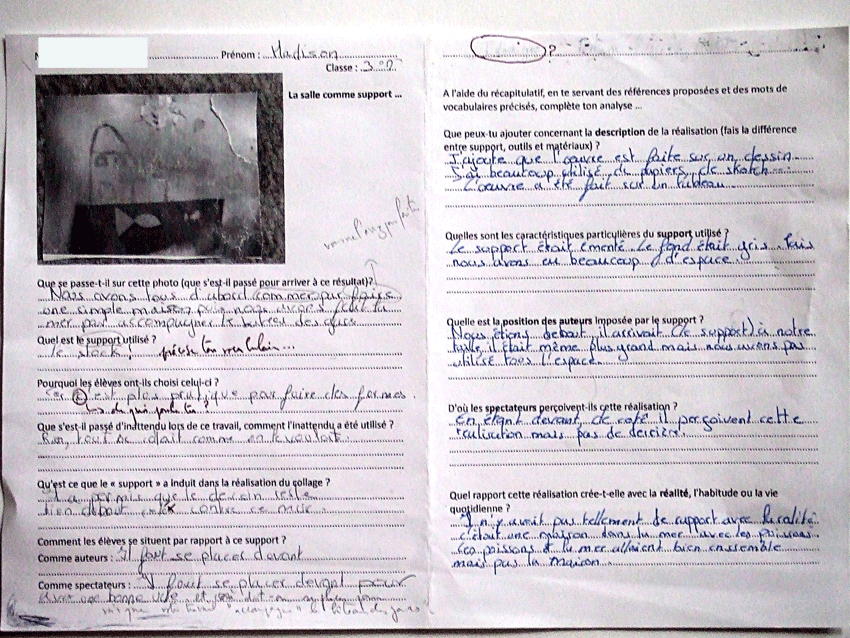 N
Prénom : Madison
Classe : 3°2
La salle comme support ...
Que se passe-t-il sur cette photo (que s'est-il passé pour arriver à ce résultat)?
Nous avons tous d'abord commencer par faire
une simple maison puis nous avons fait la
mer par accompagner le
Quel est le support utilisé ?
le précise ton vocabulaire...
Pourquoi les élèves ont-ils choisi celui-ci ?
Car c'est plus pratique par faire des formes.
de qui parles tu ?
Que s'est-il passé d'inattendu lors de ce travail, comment l'inattendu a été utilisé ?
Rien, tout se comme on le voulait.
Qu'est ce que le « support » a induit dans la réalisation du collage ?
Il a permis que le dessin reste
bien debout contre ce mur.
Comment les élèves se situent par rapport à ce support ?
Comme auteurs : Il faut se placer devant
Comme spectateurs : Il faut se placer devant pour
avoir une bonne vue et
"accompagner" le
?
A l'aide du récapitulatif, en te servant des références proposées et des mots de
vocabulaires précisés, complète ton analyse ...
Que peux-tu ajouter concernant la description de la réalisation (fais la différence
entre support, outils et matériaux) ?
J'ajoute que l'œuvre est faite sur un dessin.
J'ai beaucoup utilisé de papiers, de skotch.
L'œuvre a été fait sur un tableau.
Quelles sont les caractéristiques particulières du support utilisé ?
Le support était Le fond était gris. Puis
nous avons eu beaucoup d'espace.
Quelle est la position des auteurs imposée par le support ?
Nous étions debout il arrivait (le support) à notre
taille il était même plus grand mais nous avons pas
utilisé tous l'espace.
D'où les spectateurs perçoivent-ils cette réalisation ?
En étant devant, de coté il perçoivent cette
réalisation mais pas de derière.
Quel rapport cette réalisation crée-t-elle avec la réalité, l'habitude ou la vie
quotidienne ?
Il n'y avait pas tellement de rapport avec la réalité
c'était une maison dans la mer avec les poissons
Les poissons et la mer allaient bien ensemble
mais pas la maison.